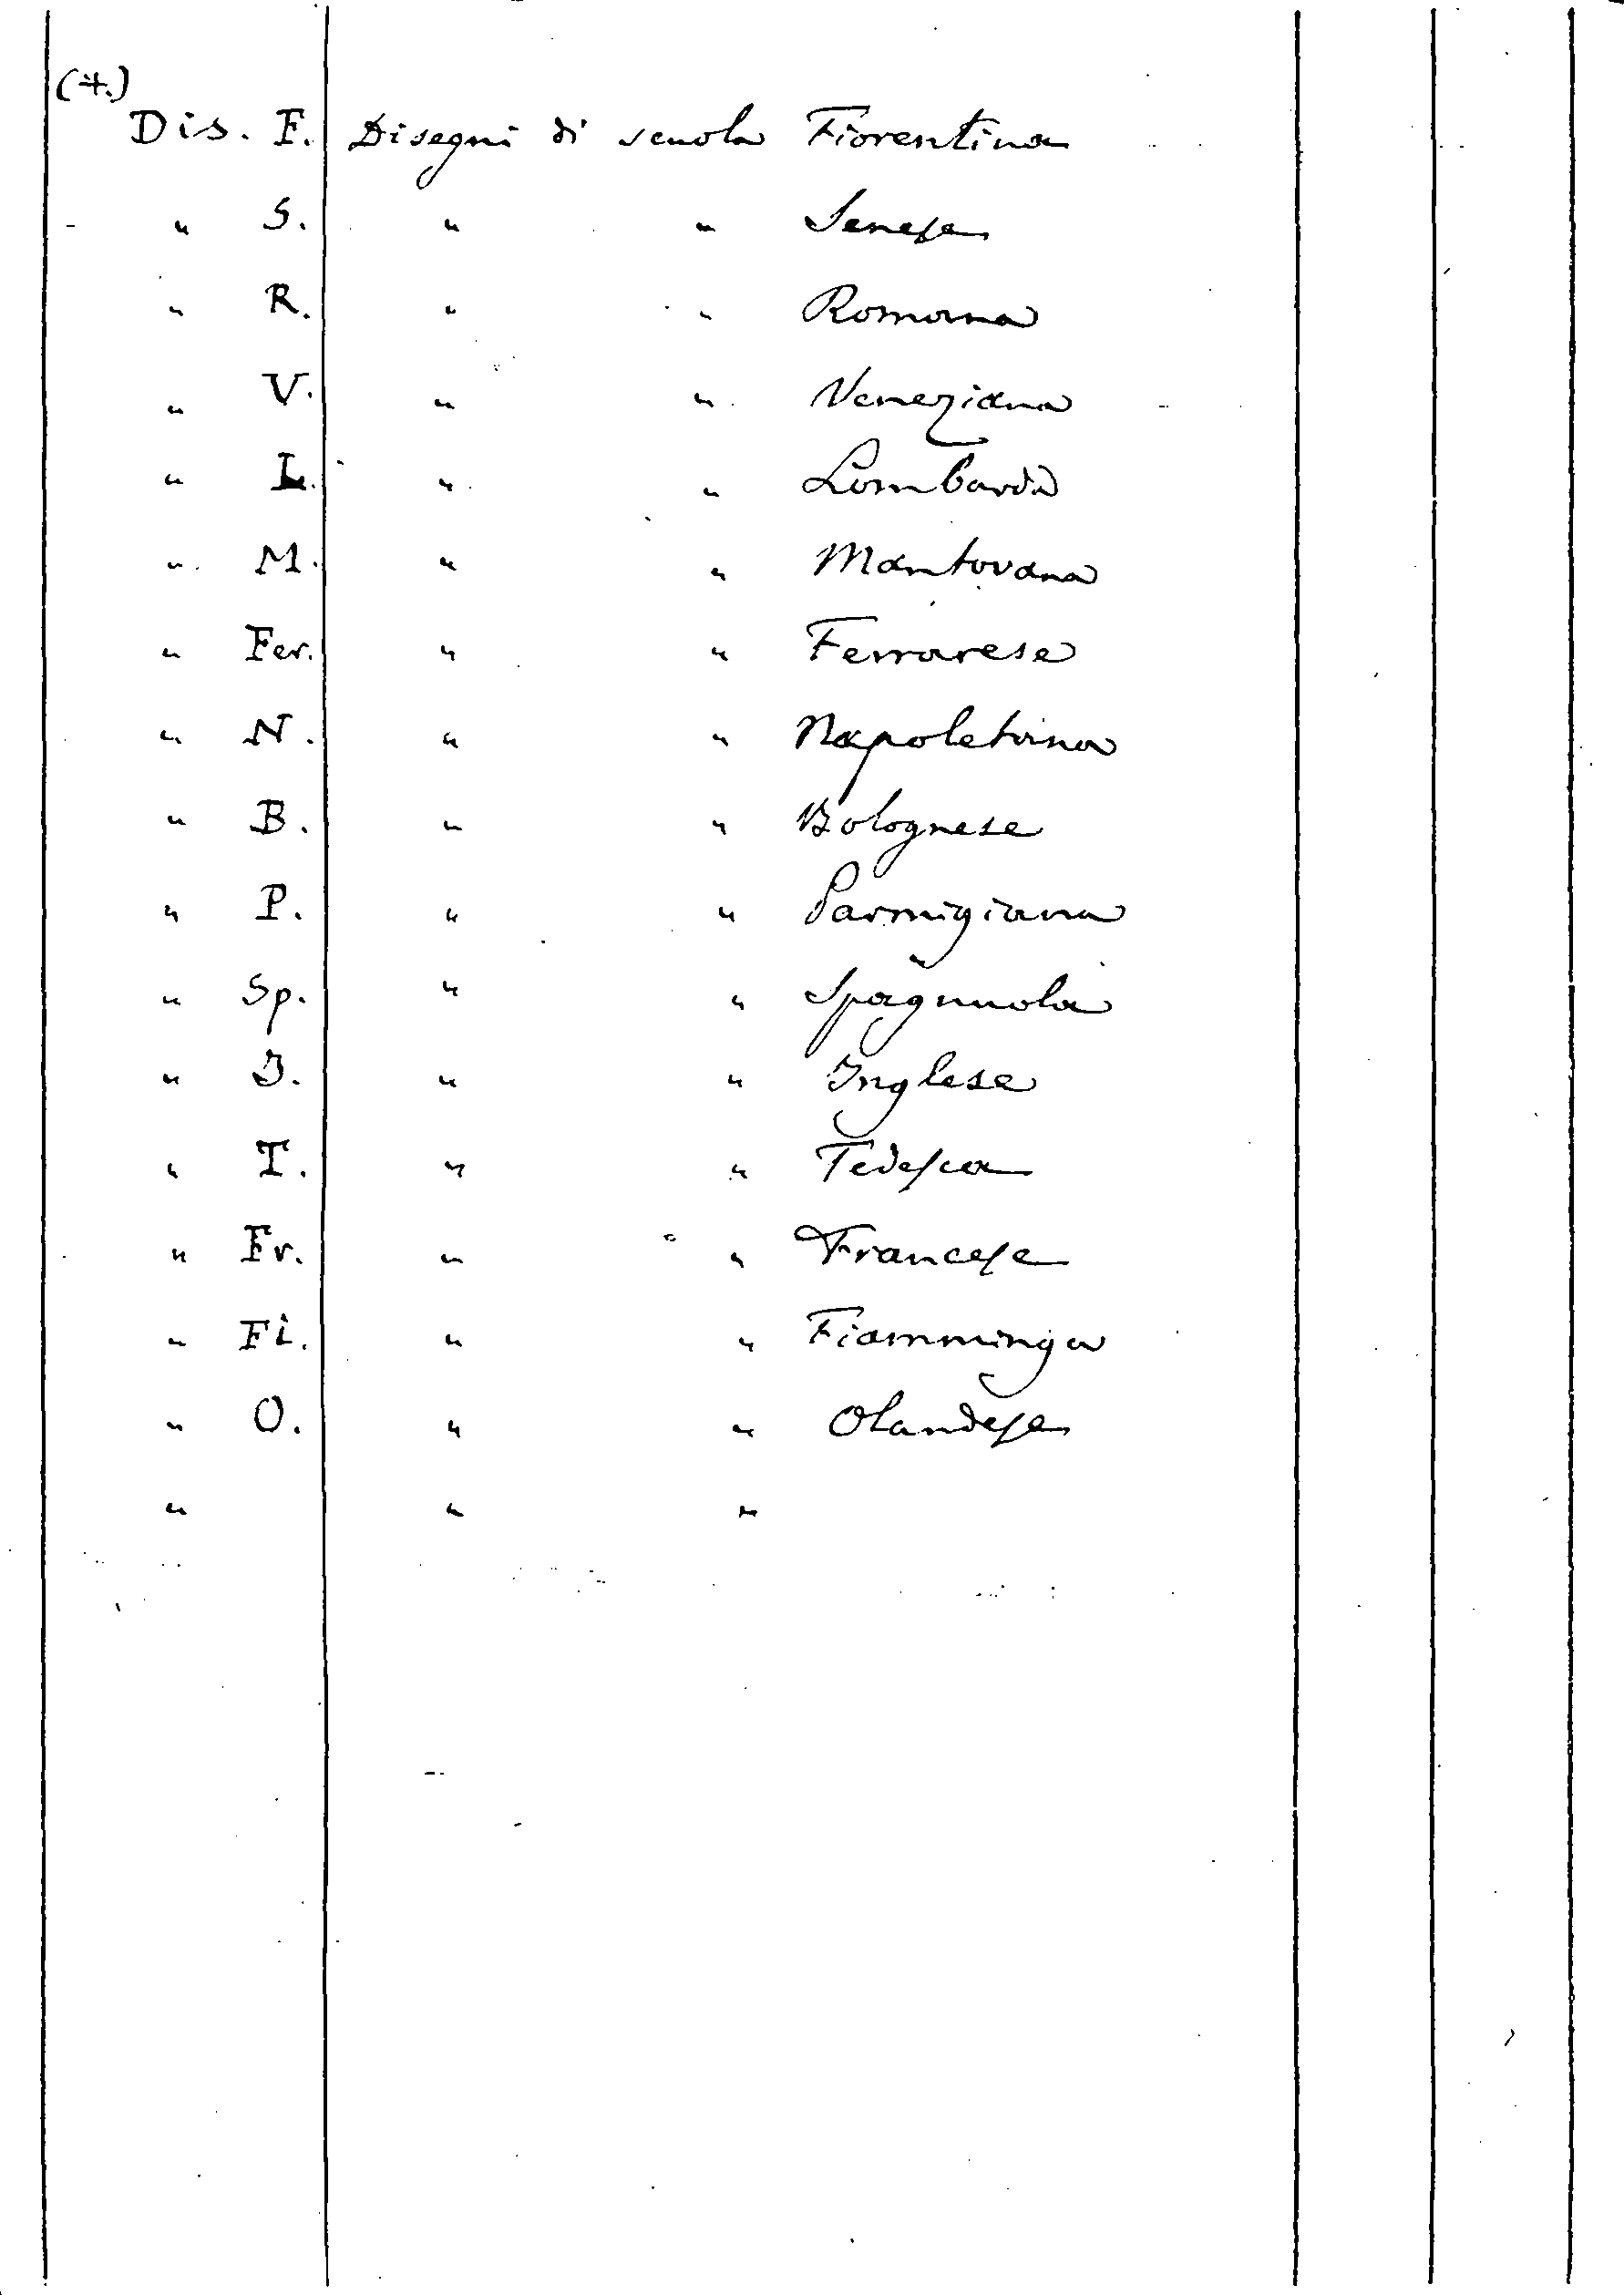 (*.)
Dis. F. Disegni di scuola Fiorentina
" S. " " Senese
" R. " " Romana
" V. " " Veneziana
" L. " " Lombarda
" M. " " Mantovana
" Fer. " " Ferrarese
" N. " " Napoletana
" B. " " Bolognese
" P. " " Parmigiana
" Sp. " " Spagnuola
" I. " " Inglese
" T. " " Tedesca
" Fr. " " Francese
" Fi. " " Fiamminga
" O. " " Olandese
" " "